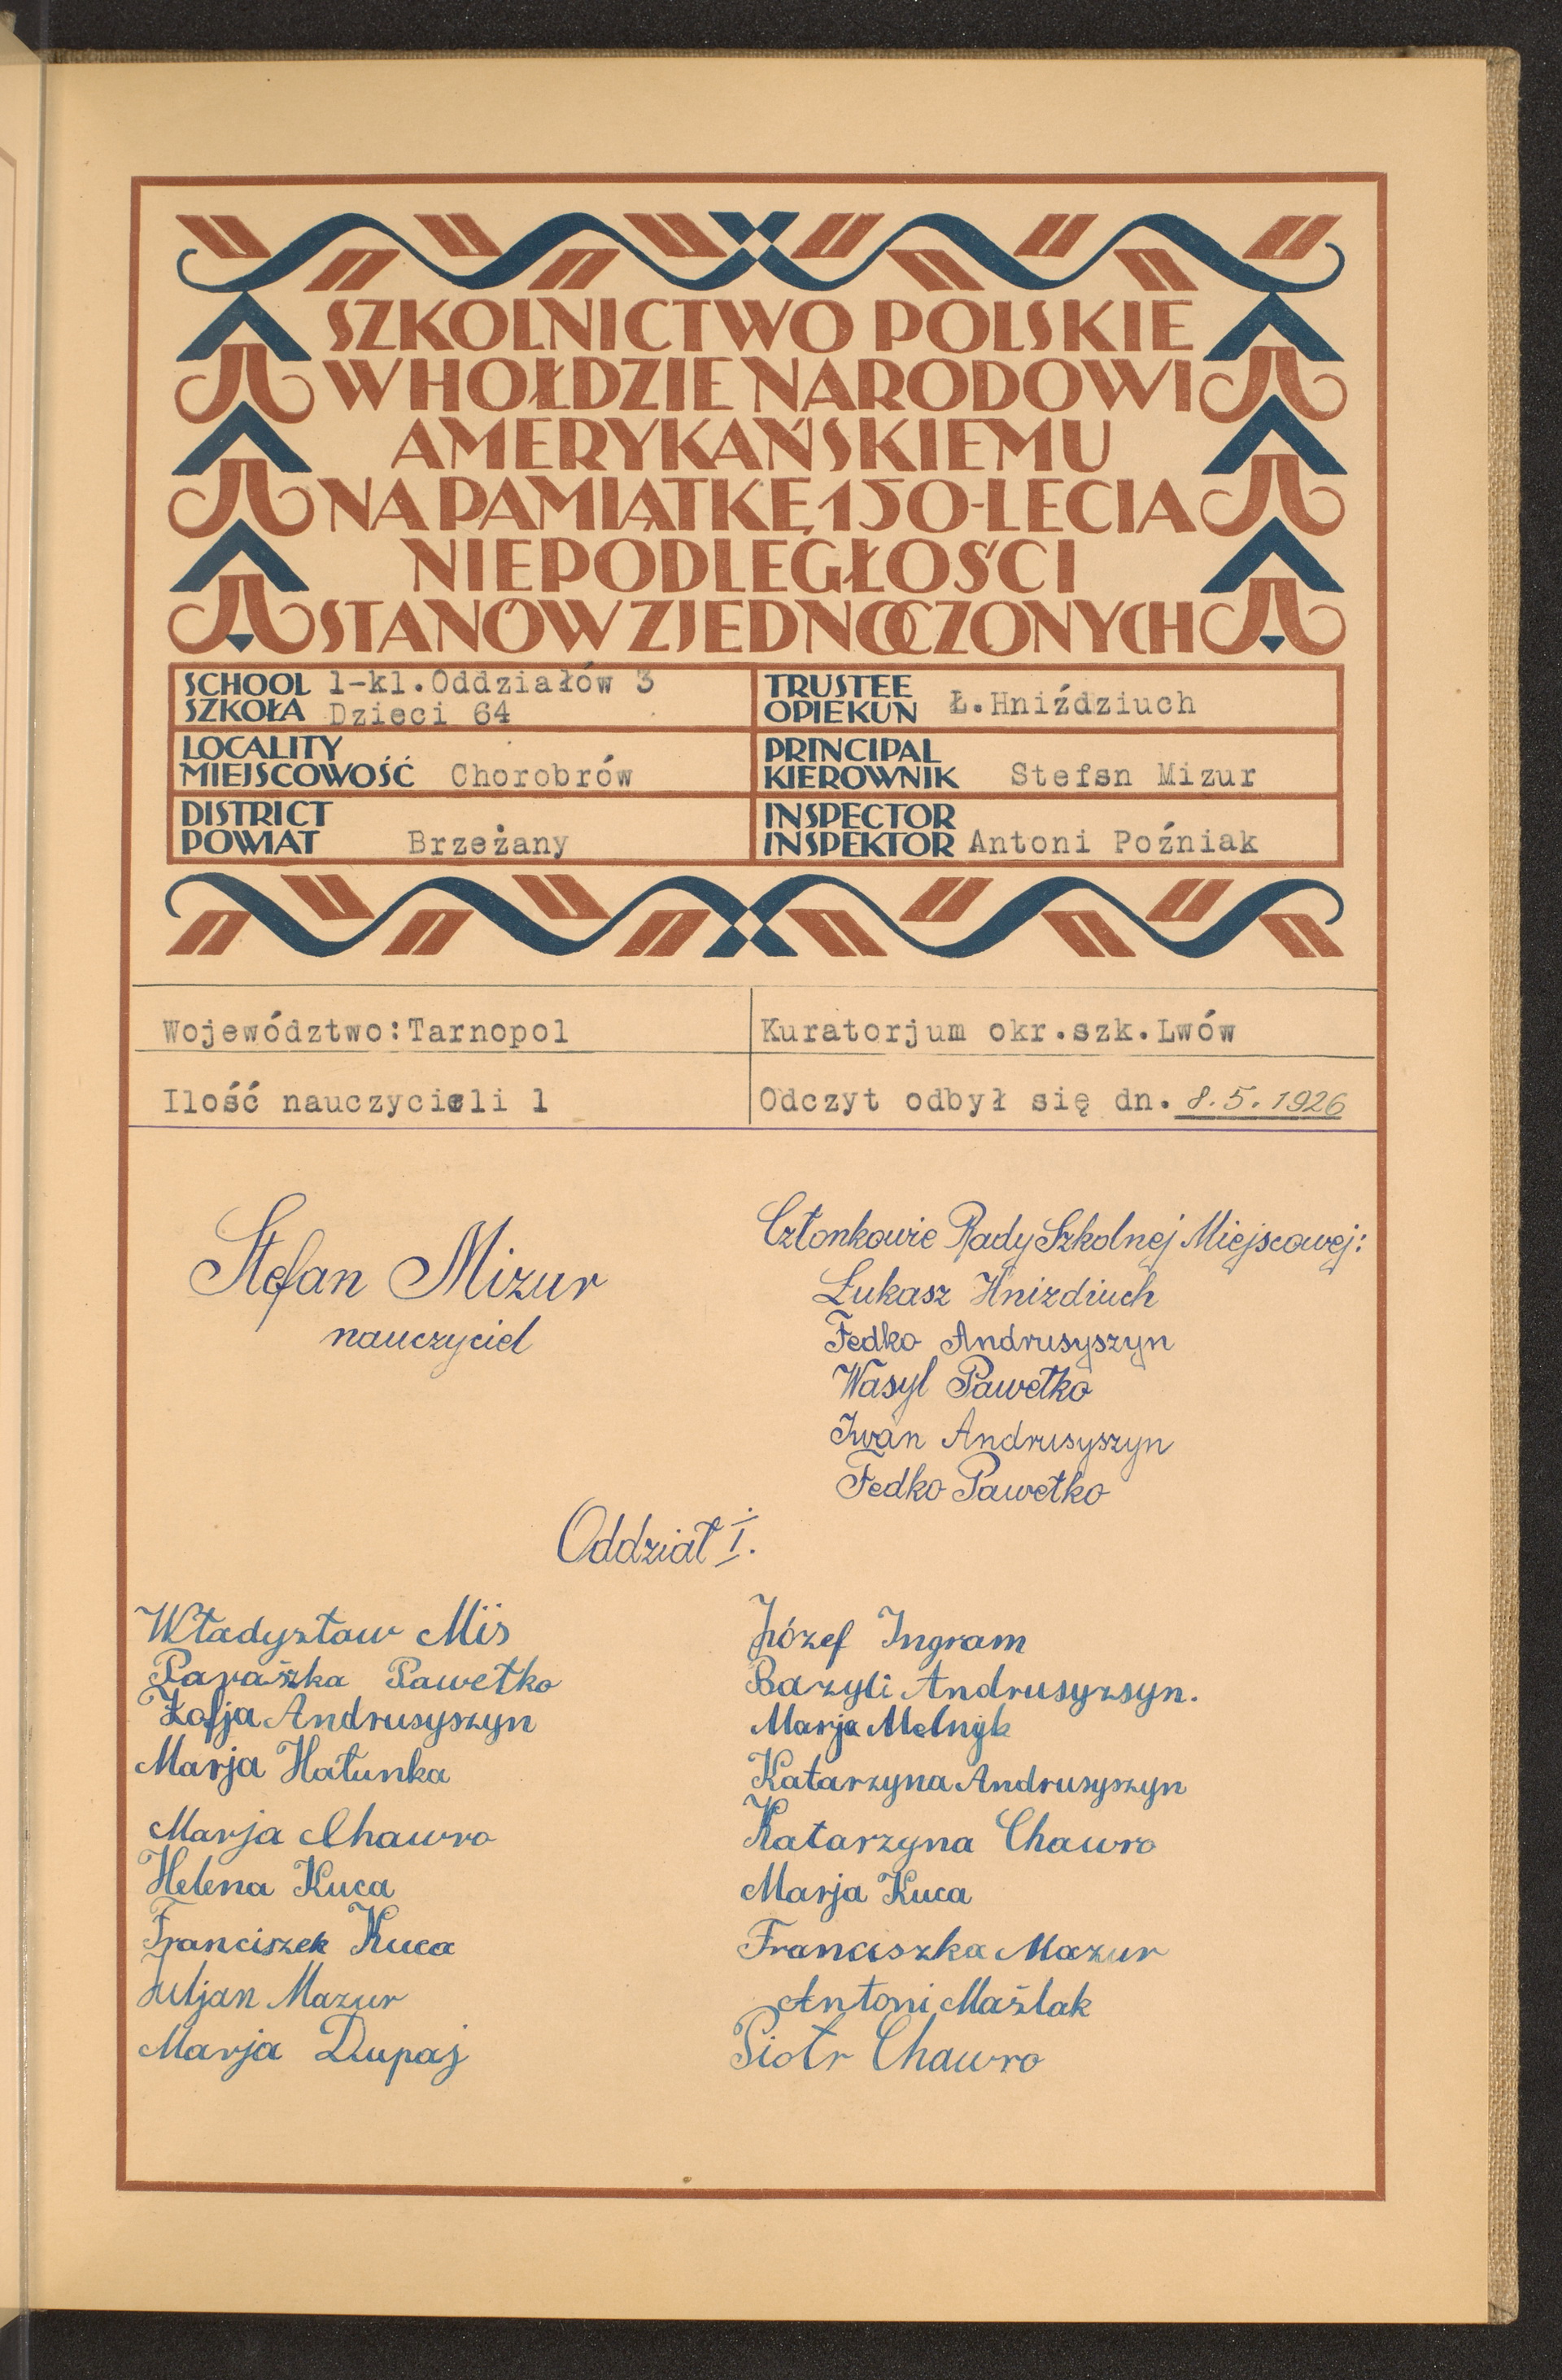 SZKOLNICTWO POLSKIE
W HOŁDZIE NARODOWI
AMERYKAŃSKIEMU
NA PAMIĄTKĘ 150-LECIA
NIEPODLEGŁOŚCI
STANÓW ZJEDNOCZONYCH
SCHOOL
SZKOŁA
1-kl.Oddziałów 3
Dzieci 64
TRUSTEE
OPIEKUN
Ł.Hniździuch
LOCALITY
MIEJSCOWOŚĆ
Chorobrów
PRINCIPAL
KIEROWNIK
Stefsn Mizur
DISTRICT
POWIAT
Brzeżany
INSPECTOR
INSPEKTOR
Antoni Poźniak
Województwo:Tarnopol
Kuratorjum okr.szk.Lwów
Ilość nauczycieli 1
Odczyt odbył się dn. 8.5.1926
Stefan Mizur
nauczyciel
Członkowie Rady Szkolnej Miejscowej:
Łukasz Hnizdiuch
Fedko Andrusyszyn
Wasyl Pawełko
Iwan Andrusyszyn
Fedko Pawełko
Oddział I.
Władyztaw Miś
Paraszka Pawełko
Zofja Andrusyszyn
Marja Hałunka
Marja Chawro
Helena Kuca
Franciszek Kuca
Juljan Mazur
Marja Dupaj
Józef Ingram
Bazyli Andrusyzsyn.
Marja Melnyk
Katarzyna Andrusyszyn
Katarzyna Chawro
Marja Kuca
Franciszka Mazur
Antoni Maślak
Piotr Chawro